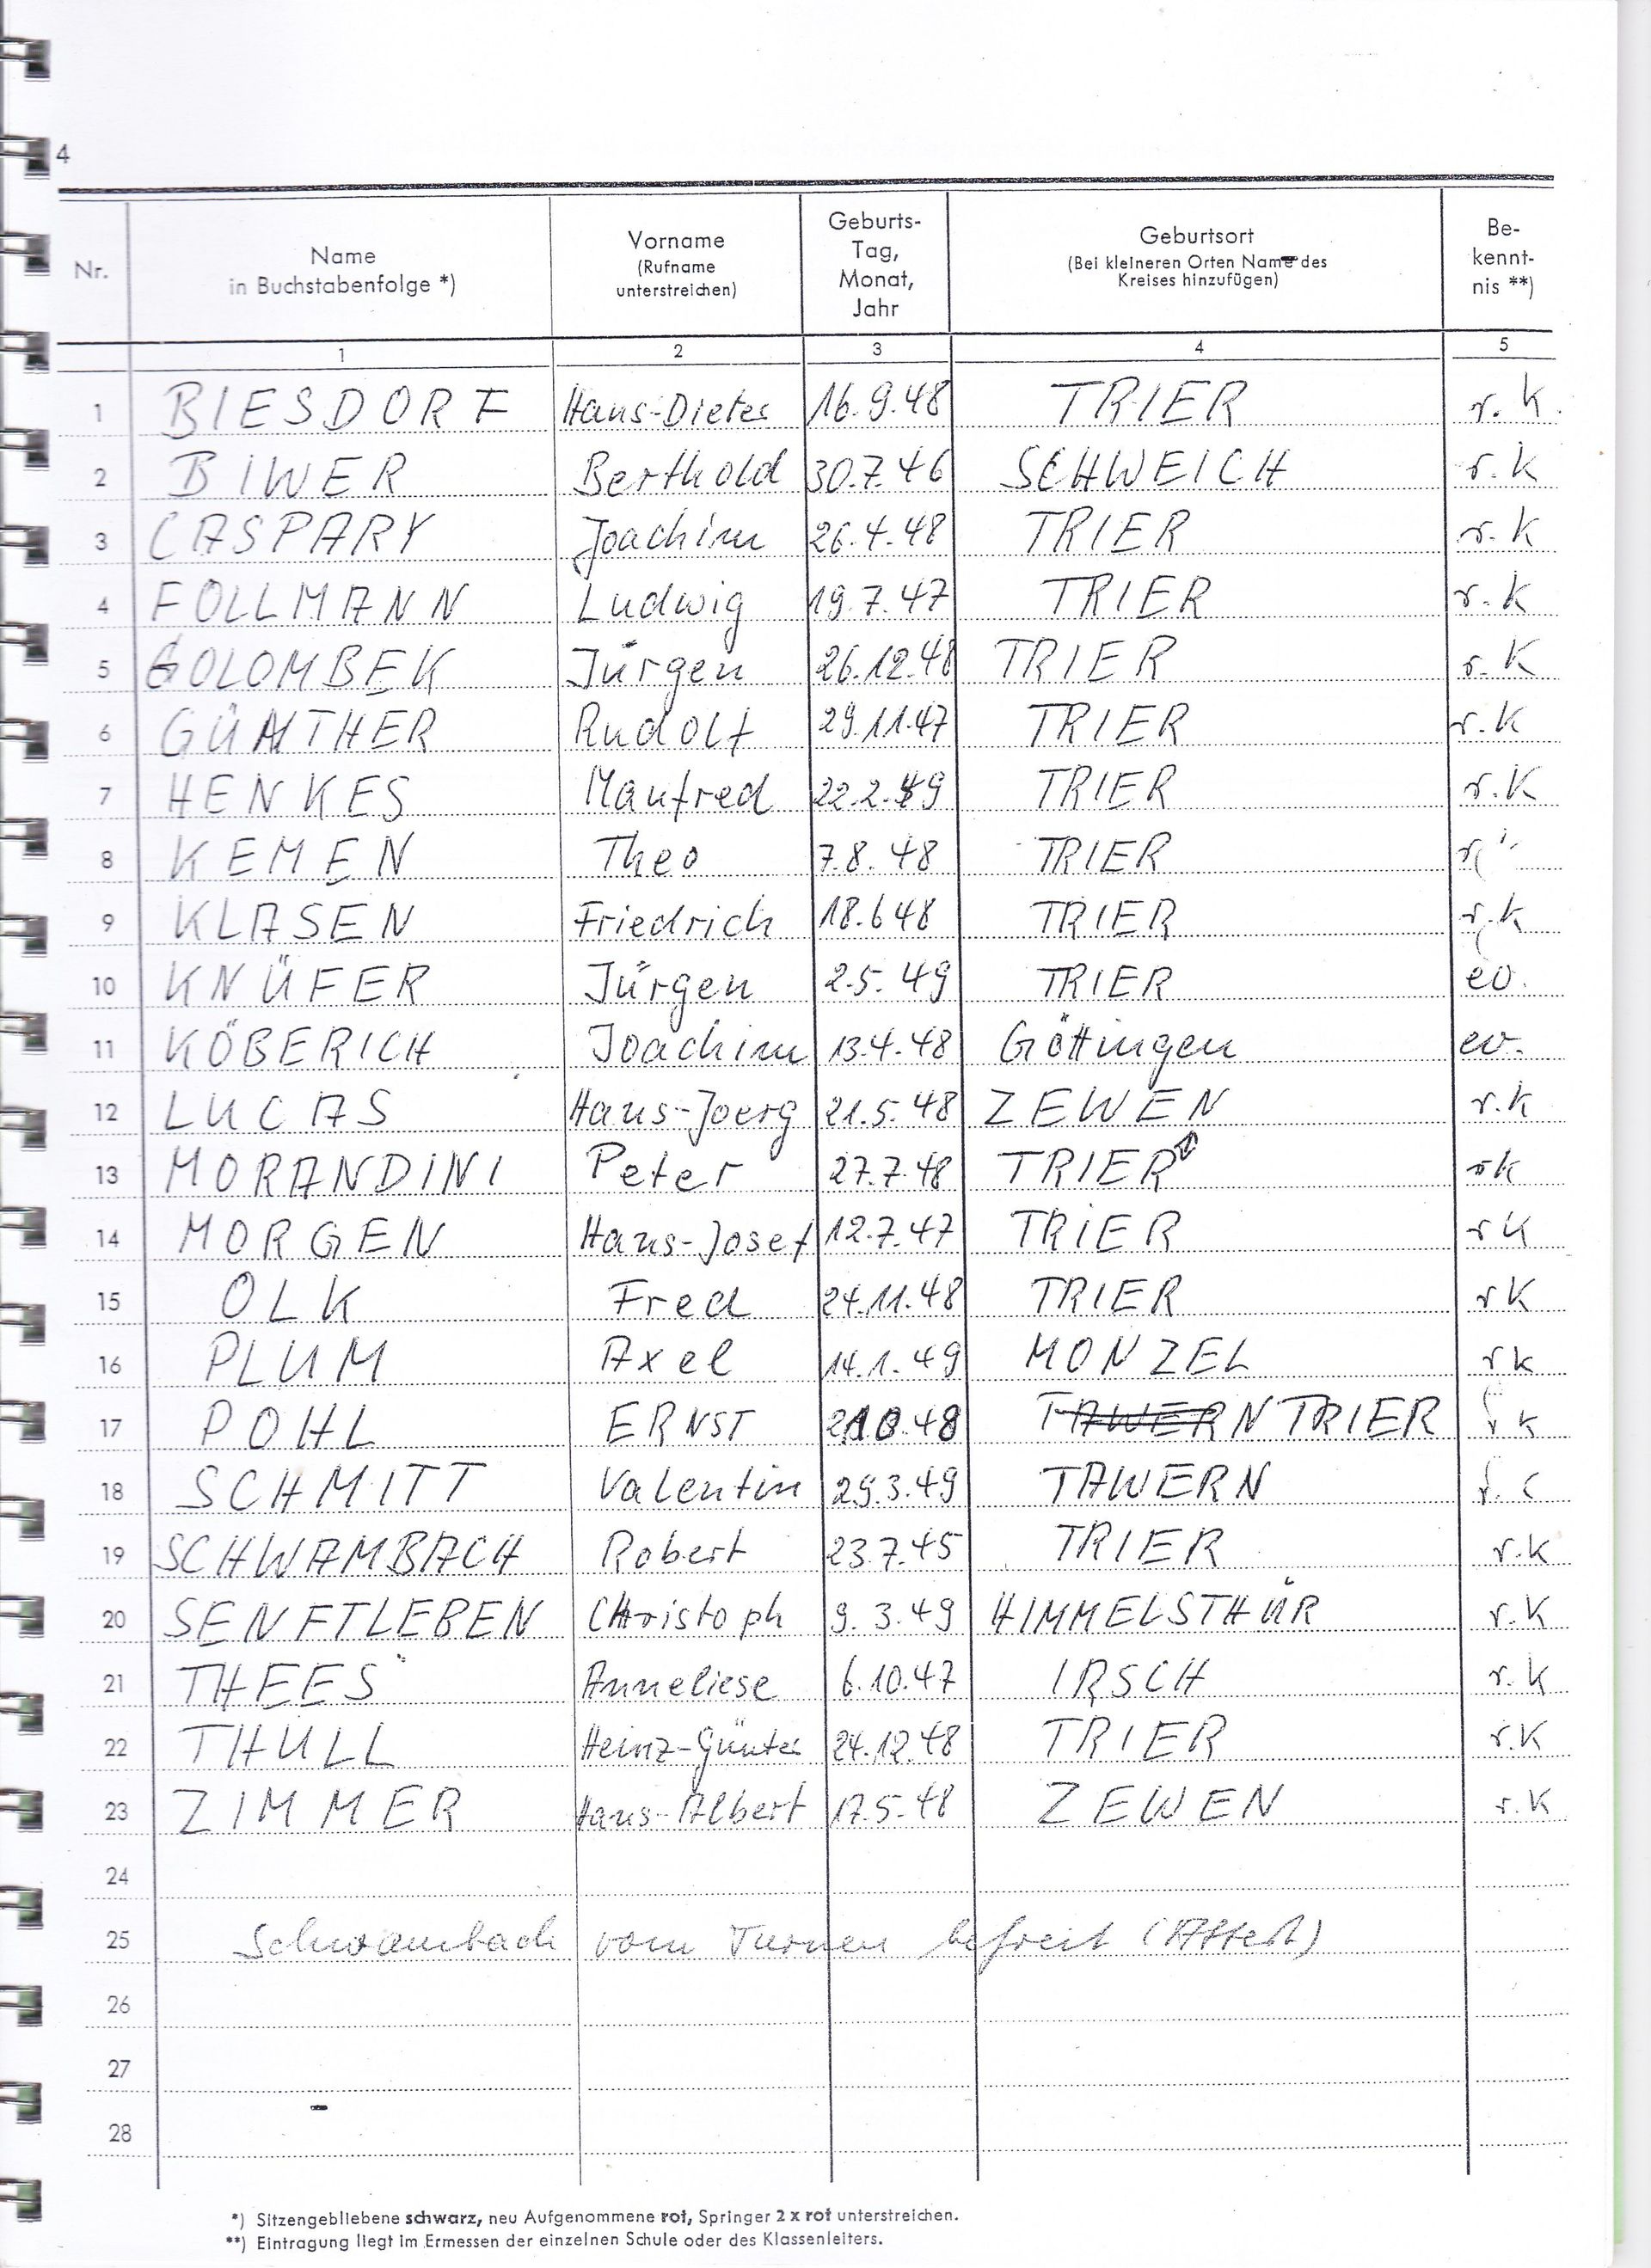 4
Nr. Name in Buchstabenfolge *) Vorname (Rufname unterstreichen) Geburts-Tag, Monat, Jahr Geburtsort (Bei kleineren Orten Name des Kreises hinzufügen) Be-kennt-nis **)
1 2 3 4 5
1 BIESDORF Hans-Dieter 16.9.48 TRIER r.k.
2 BIWER Berthold 30.7.46 SCHWEICH r.k
3 CASPARY Joachim 26.4.48 TRIER r.k
4 FOLLMANN Ludwig 19.7.47 TRIER r.k
5 GOLOMBEK Jürgen 26.12.48 TRIER r.K
6 GÜNTHER Rudolf 29.11.47 TRIER r.K
7 HENKES Manfred 22.2.49 TRIER r.K
8 KEMEN Theo 7.8.48 TRIER
9 KLASEN Friedrich 18.648 TRIER r.k
10 KNÜFER Jürgen 2.5.49 TRIER ev.
11 KÖBERICH Joachim 13.4.48 Göttingen ev.
12 LUCAS Hans-Joerg 21.5.48 ZEWEN r.k
13 MORANDINI Peter 27.7.48 TRIER rk
14 MORGEN Hans-Josef 12.7.47 TRIER rk
15 OLK Fred 24.11.48 TRIER rK
16 PLUM Axel 14.1.49 MONZEL rk
17 POHL ERNST TAWERN TRIER rk
18 SCHMITT Valentin 29.3.49 TAWERN
19 SCHWAMBACH Robert 23.7.45 TRIER r.k
20 SENFTLEBEN Christoph 9.3.49 HIMMELSTHÜR r.K
21 THEES Anneliese 6.10.47 IRSCH r.k
22 THULL Heinz-Günter 24.12.48 TRIER r.K
23 ZIMMER Hans-Albert 17.5.48 ZEWEN r.K
24
25 Schwambach vom Turnen befreit (Attest)
26
27
28
*) Sitzengebliebene schwarz, neu Aufgenommene rot, Springer 2 x rot unterstreichen.
**) Eintragung liegt im Ermessen der einzelnen Schule oder des Klassenleiters.